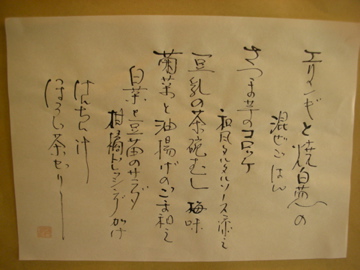 エリンギと焼白葱の
混ぜごはん
さつま芋のコロッケ
和風タルタルソース添え
豆乳の茶碗むし 梅味
菊菜と油揚げのごま和え
白菜と豆苗のサラダ
柑橘ドレッシングがけ
けんちん汁
ほうじ茶ゼリー